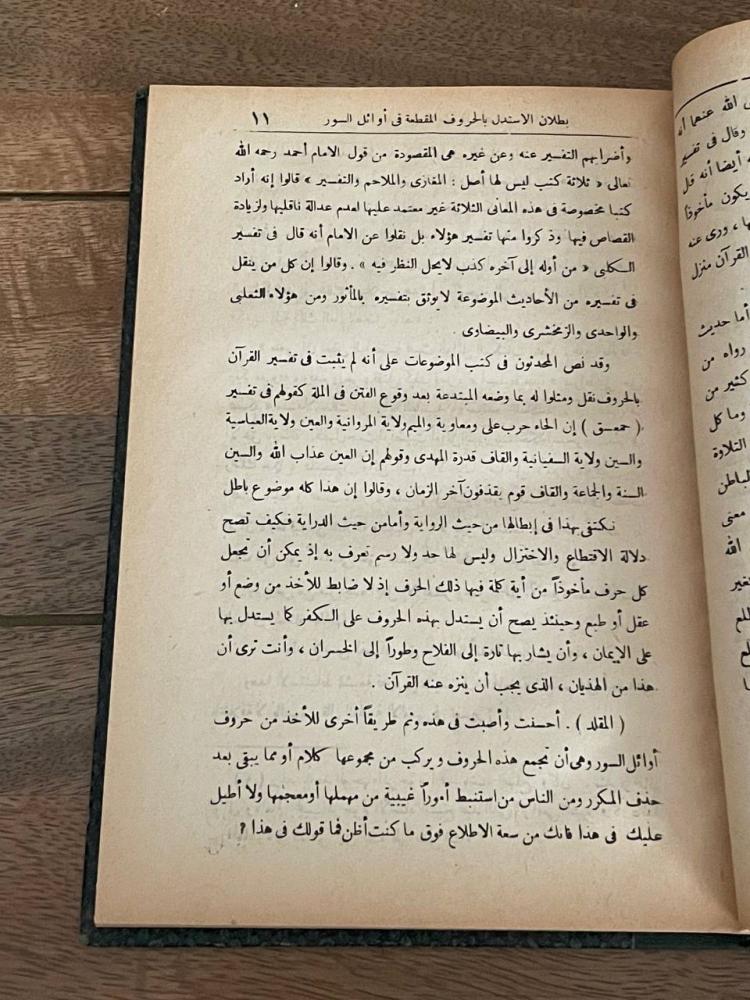 بطلان الاستدل بالحروف المقطعة فى أوائل السور ١١
وأضرابهم التفسير عنه وعن غيره هى المقصودة من قول الامام أحمد رحمه الله
تعالى « ثلاثة كتب ليس لها أصل : المغازى والملاحم والتفسير » قالوا إنه أراد
كتبا مخصوصة فى هذه المعانى الثلاثة غير معتمد عليها لعدم عدالة ناقليها ولزيادة
القصاص فيها وذكروا منها تفسير هؤلاء بل نقلوا عن الامام أنه قال فى تفسير
الكلبى « من أوله إلى آخره كذب لايحل النظر فيه » . وقالوا إن كل من ينقل
فى تفسيره من الأحاديث الموضوعة لايوثق بتفسيره بالمأثور ومن هؤلاء الثعلبى
والواحدى والزمخشرى والبيضاوى .
وقد نص المحدثون فى كتب الموضوعات على أنه لم يثبت فى تفسير القرآن
بالحروف نقل ومثلوا له بما وضعه المبتدعة بعد وقوع الفتن فى الملة كقولهم فى تفسير
( حمعسق ) إن الحاء حرب على ومعاوية والميم ولاية المروانية والعين ولاية العباسية
والسين ولاية السفيانية والقاف قدرة المهدى وقولهم إن العين عذاب الله والسين
السنة والجماعة والقاف قوم يقذفون آخر الزمان ، وقالوا إن هذا كله موضوع باطل
نكتفى بهذا فى إبطالها من حيث الرواية وأما من حيث الدراية فكيف تصح
دلالة الاقتطاع والاختزال وليس لها حد ولا رسم تعرف به إذ يمكن أن تجعل
كل حرف مأخوذاً من أية كلمة فيها ذلك الحرف إذ لا ضابط للأخذ من وضع أو
عقل أو طبع وحينئذ يصح أن يستدل بهذه الحروف على الكفر كما يستدل بها
على الإيمان ، وأن يشار بها تارة إلى الفلاح وطوراً إلى الخسران ، وأنت ترى أن
هذا من الهذيان ، الذى يجب أن ينزه عنه القرآن .
( المقلد ) . أحسنت وأصبت فى هذه وثم طريقاً أخرى للأخذ من حروف
أوائل السور وهى أن تجمع هذه الحروف و يركب من مجموعها كلام أو مما يبقى بعد
حذف المكرر ومن الناس من استنبط أموراً غيبية من مهملها أو معجمها ولا أطيل
عليك فى هذا فانك من سعة الاطلاع فوق ما كنت أظن فما قولك فى هذا ؟
الله عنهما أنه
وقال فى تفسير
أيضا أنه قل
يكون مأخوذا
ها ، وروى عنه
القرآن منزل
أما حديث
رواه من
كثير من
وما كل
التلاوة
الباطن
معنى
الله